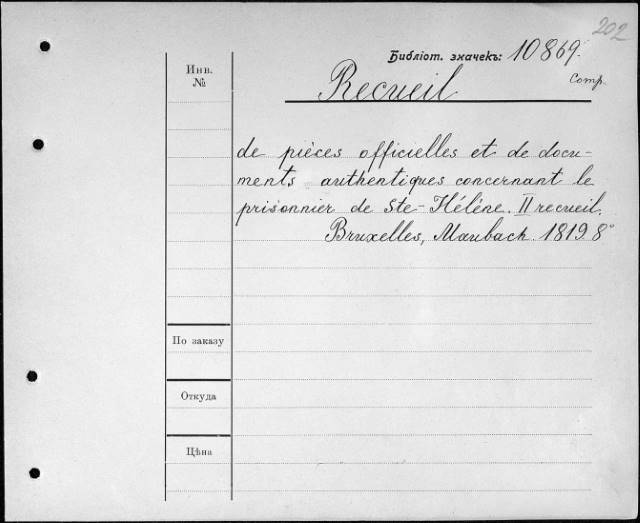 202
Библіот. значекъ: 10869.
Comp.
Инв.
№
Recueil
de pièces officielles et de docu-
ments authentiques concernant le
prisonnier de Ste-Hélène. II recueil.
Bruxelles, Maubach. 1819. 8°
По заказу
Откуда
Цѣна